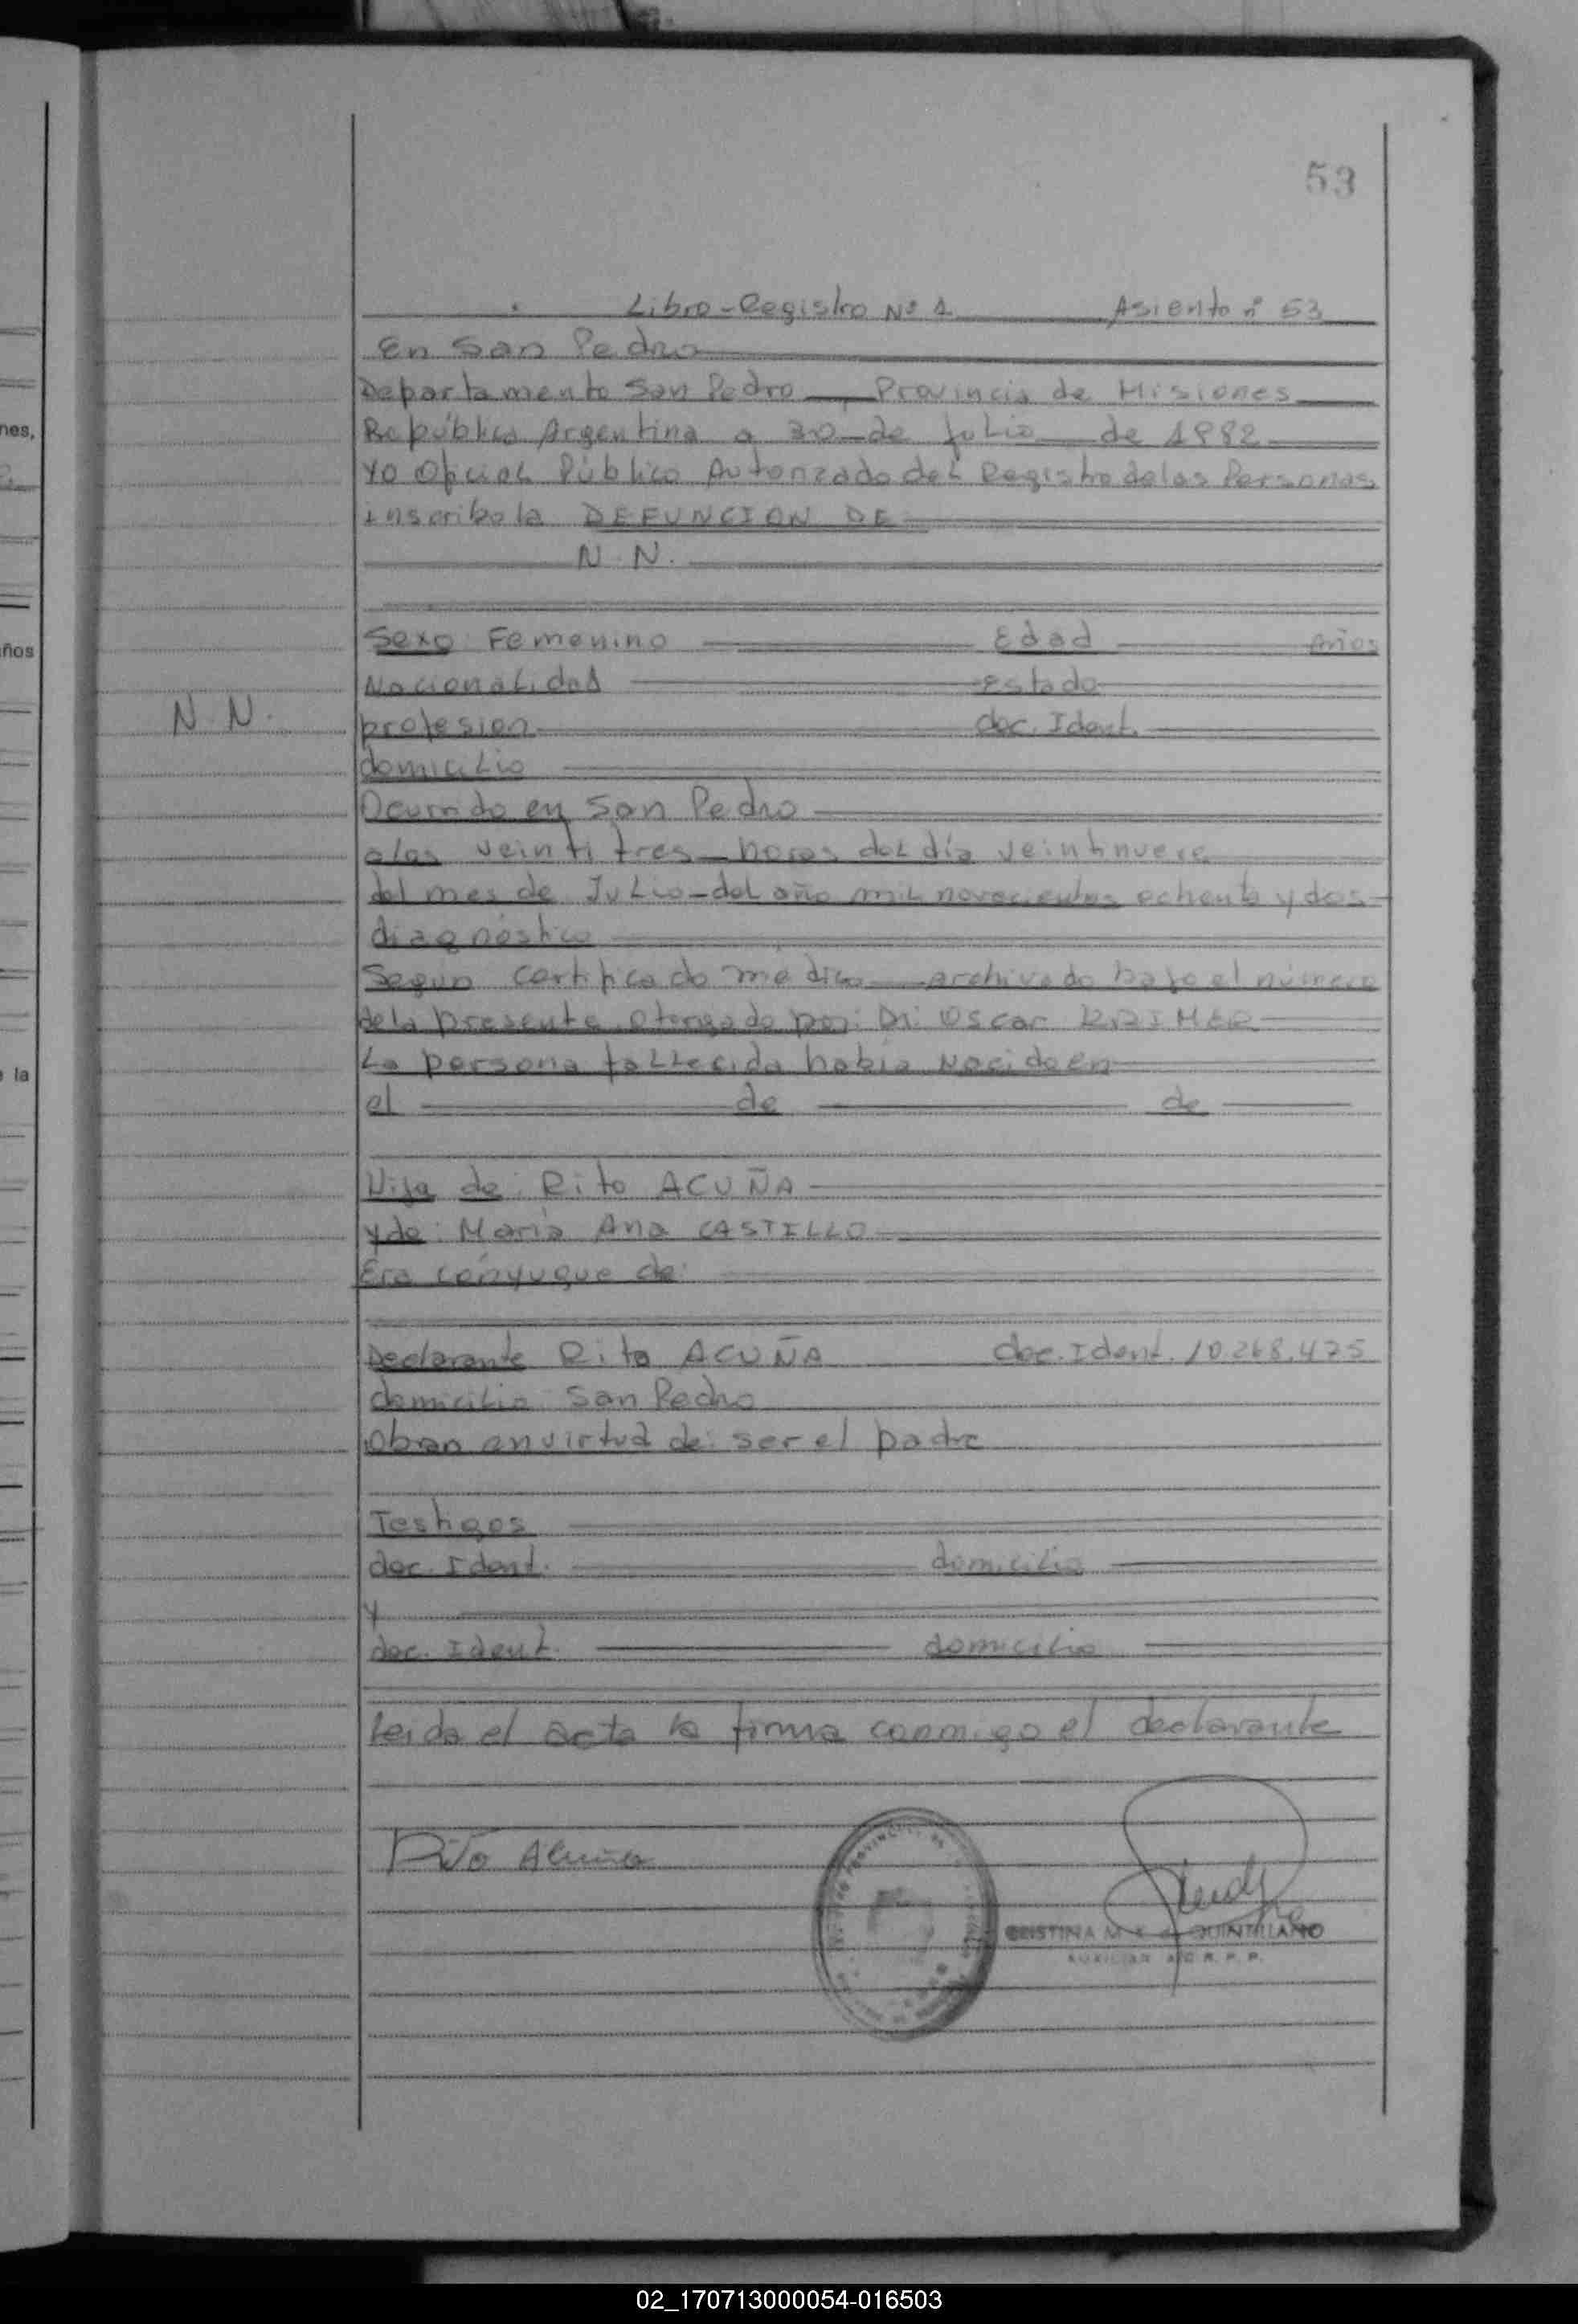 53
Libro-Registro Nº 1 Asiento nº 53
En San Pedro
Departamento San Pedro, Provincia de Misiones
República Argentina a 30 de Julio de 1982
Yo Oficial Público Autorizado del Registro de las Personas
inscribo la DEFUNCION DE
N. N.
Sexo: Femenino Edad años
Nacionalidad estado
N. N.
profesion doc. Ident.
domicilio
Ocurrido en San Pedro
a las veintitres horas del día veintinueve
del mes de Julio del año mil novecientos ochenta y dos
diagnóstico
Según certificado médico archivado bajo el número
de la presente otorgado por: Dr. Oscar KRIMER
La persona fallecida había Nacido en
el de de
Hija de: Rito ACUÑA
y de: María Ana CASTILLO
Era cónyugue de:
Declarante Rito ACUÑA doc. Ident. 10.268.475
domicilio San Pedro
Obran en virtud de: ser el padre
Testigos
doc. Ident. domicilio
y
doc. Ident. domicilio
Leida el acta la firma conmigo el declarante
Rito Acuña
CRISTINA M. K. de QUINTILLANO
AUXILIAR R. P. P.
nes,
ños
la
02_170713000054-016503